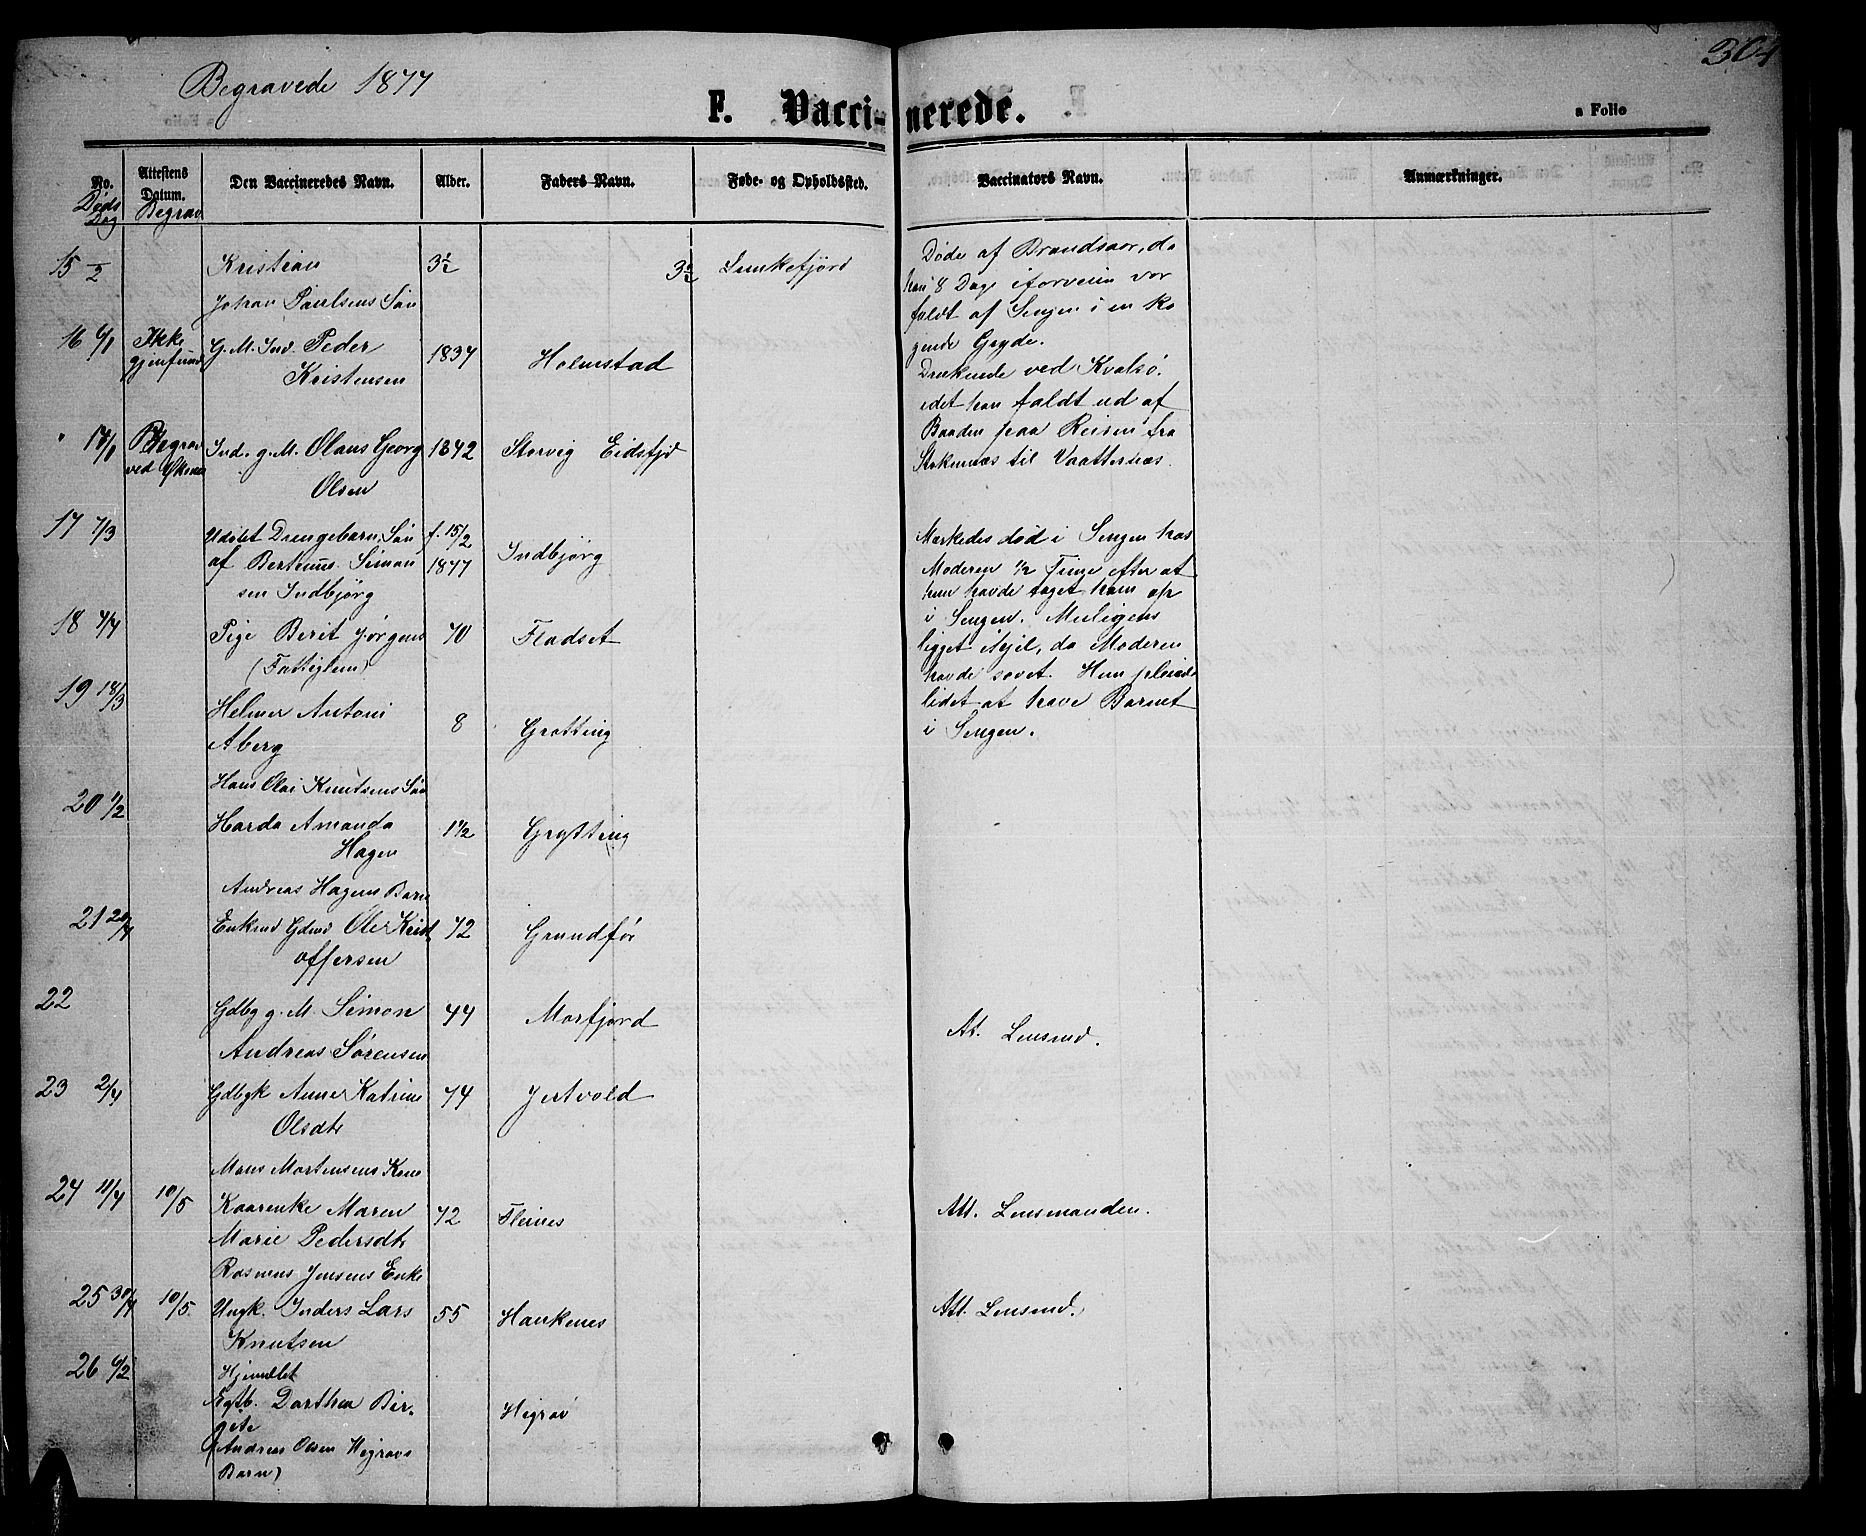 304
Begravede 1877
F. Vaccinerede.
a Folio
No. Attestens Datum. Den Vaccineredes Navn. Alder. Faders Navn. Føde- og Opholdssted. Vaccinators Navn. Anmærkninger.
Døds Dag Begrav
15 /2 Kristian 3½ 3½
Johan Paulsens Søn
16 6/1 Ikke gjenfund G. M. Ind. Peder 1837 Holmstad
Kristensen
17/1 Begrav ved Ind. g. M. Olaus Georg 1842 Storvig Eidsfjd
Olsen
17 7/3 Udøbt Drengebarn, Søn f. 15/2 Indbjørg
af Simon 1877
sen Indbjørg
18 4/4 Pige Berit Jørgens 70 Fladset
(Fattiglem)
19 18/3 Helmer Antoni 8 Grotting
Aberg
Hans Olai Knutsens Søn
20 1/2 Harda Amanda 1½ Grytting
Hagen
Andreas Hagens Barn
21 20/4 Enkmd Gdmd Ole Krist 72 Grundfør
offersen
22 Gdbg g. M. Simon 44 Morfjord
Andreas Sørensen
23 2/4 Gdbgk Anne Katrine 74 Jertvold
Olsdtr
Mons Mortensens Kone
24 11/4 10/5 Kaarenke Maren 72 Fleines
Marie Pedersdtr
Rasmus Jensens Enke
25 30/4 10/5. Ungk. Inders Lars 55 Haukenes
Knutsen
26 6/2 Hjemdbt
Egtb. Dorthea Bir- Hegrav
gete
(Andreas Olsen Hegravs
Barn)
Døde af Brandsaar, da
han 8 Dage iforveien var
faldt af Sengen i en ko
gende Gryde.
Druknede ved Kvalsø.
edet han faldt ud af
Baaden paa Reisen fra
Stokmnæs til
Mærkedes død i Sengen hos
Moderen ½ Time efter at
hun havde taget ham op
i Sengen. Muligens
ligget ihjel, da Moderen
havde sovet. Hun
lidet at have Barnet
i Sengen.
At. Lensmd.
Att. Lensmanden.
Att. Lensmd.